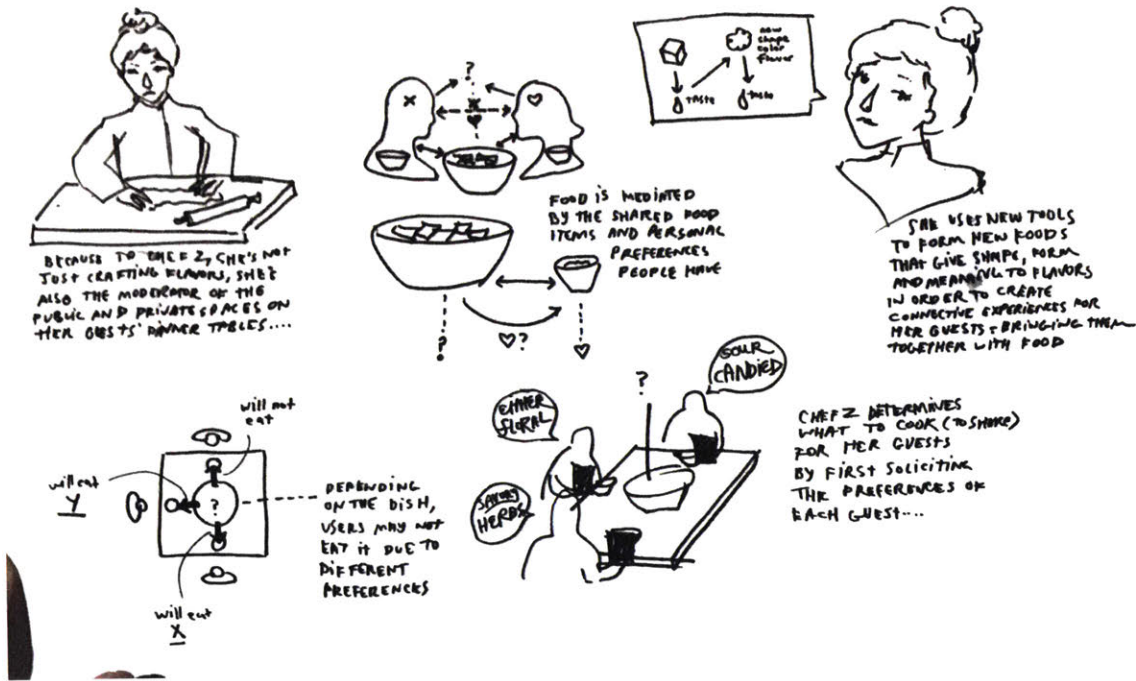 BECAUSE TO CHEF Z, SHE'S NOT
JUST CRAFTING FLAVORS, SHE'S
ALSO THE MODERATOR OF THE
PUBLIC AND PRIVATE SPACES ON
HER GUESTS' DINNER TABLES....
?
X
FOOD IS MEDIATED
BY THE SHARED FOOD
ITEMS AND PERSONAL
PREFERENCES
PEOPLE HAVE
?
♡?
♡
new
shape
color
flavor
TASTE
TASTE
SHE USES NEW TOOLS
TO FORM NEW FOODS
THAT GIVE SHAPE, FORM
AND MEANING TO FLAVORS
IN ORDER TO CREATE
CONNECTIVE EXPERIENCES FOR
HER GUESTS + BRINGING THEM
TOGETHER WITH FOOD
will not
eat
will eat
Y
?
will eat
X
DEPENDING
ON THE DISH,
USERS MAY NOT
EAT IT DUE TO
DIFFERENT
PREFERENCES
SOUR
CANDIED
?
FLORAL
SAVORY
HERBS
CHEF Z DETERMINES
WHAT TO COOK (TO SHARE)
FOR HER GUESTS
BY FIRST SOLICITING
THE PREFERENCES OF
EACH GUEST....